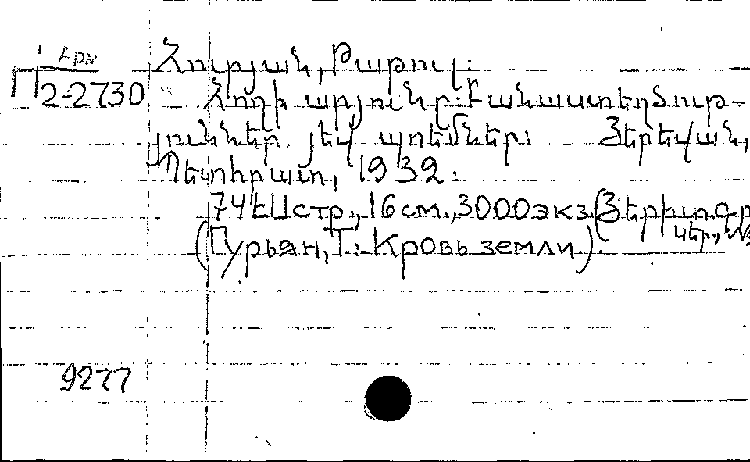 Հուրյան, Թաթուլ։
П2-2730
Հողի արյունը։ Բանաստեղծութ-
յուններ յեվ պոեմներ։ Յերեվան,
Պետհրատ, 1932։
74 էЦ стр., 16 см., 3000 экз. (Յերիտ. գր
կեր,
(Гурьян, Т.: Кровь земли)
9277